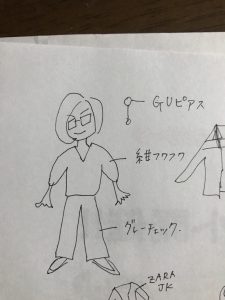 GUピアス
紺フワフワ
グレーチェック.
ZARA
JK